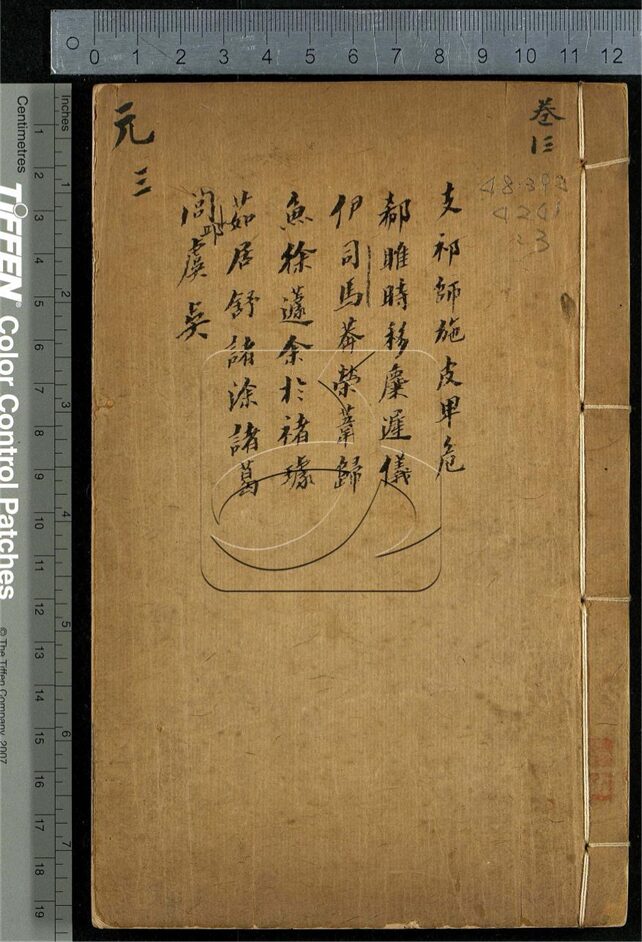 卷三
48-393
4241
:3
支祁師施皮卑危
郗睢時移麋遲儀
伊司馬莽榮葦歸
魚徐蘧余於褚璩
茹居舒諸涂諸葛
閭邱虞吳
元三
0 1 2 3 4 5 6 7 8 9 10 11 12
Inches
1 2 3 4 5 6 7
Centimetres
1 2 3 4 5 6 7 8 9 10 11 12 13 14 15 16 17 18 19
TIFFEN® Color Control Patches
© The Tiffen Company, 2007